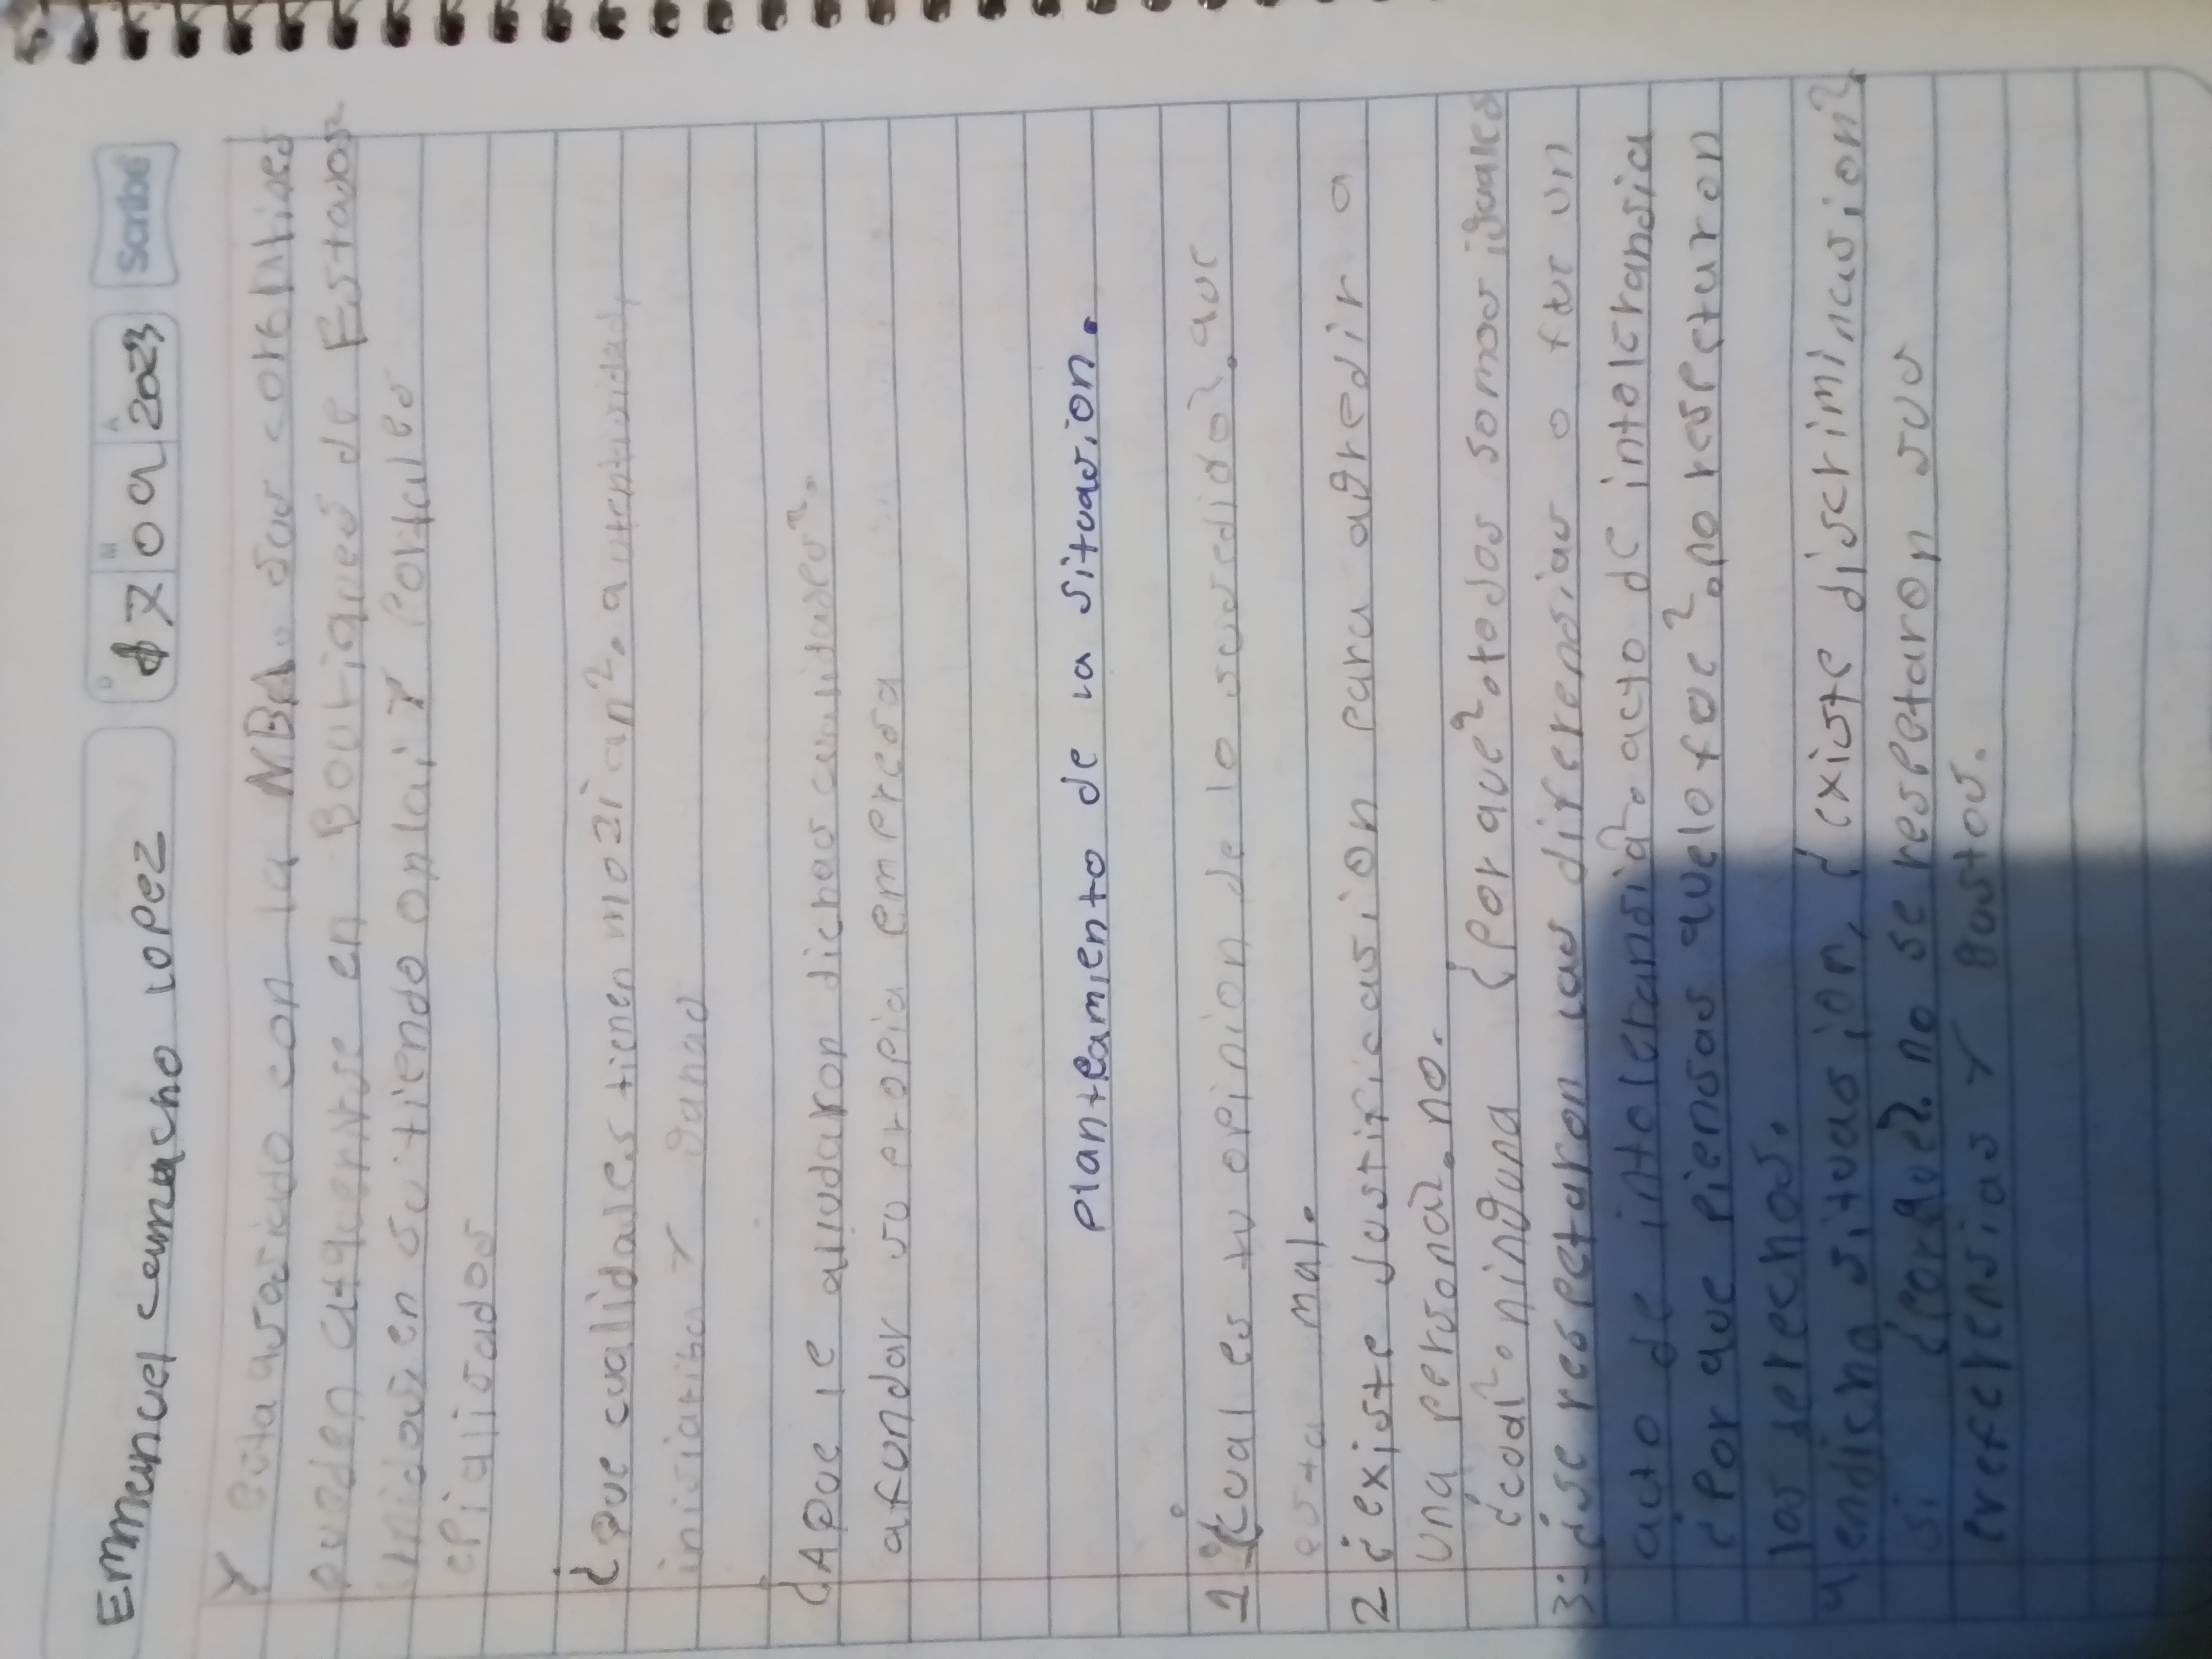 Emmanuel camacho lopez
D M A
17 09 2023
Scribe
Y esta asosiado con la NBA. sus
pueden adquerirse en Boutiques de Estados
unidos, en su tiendo onlai Y Portales
epialisados
¿Que cualidades tienen mozian?. autentisidad,
inisiatiba Y ganas
¿A Que le aliudaron dichas cualidades?.
a fundar su propia empresa
planteamiento de la situasion.
1- ¿Cual es tu opinion de lo susedido?. que
esta mal.
2 ¿existe Justificasion para agredir a
una persona?. no.
¿cual?. ninguna ¿Por que?. todos somos iguales
3- ¿se respetaron las diferensias o fue un
acto de intoleransia?. acto de intoleransia
¿Por que piensas quelo fue?. no respeturon
los serechos.
4 endicha situasion, ¿existe discriminasion?
si ¿porque?. no se respetaron sus
preferensias Y gustos.